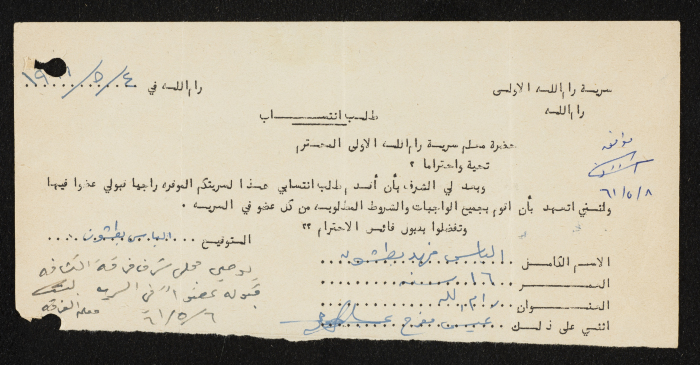 سرية رام الله الاولى
رام الله
رام الله في ٤/٥/١٩٦١
طلب انتساب
حضرة معلم سرية رام الله الاولى المحترم
تحية واحتراما ؟
وبعد لي الشرف بأن أقدم طلب انتسابي هذا لسريتكم الموقره راجيا قبولي عضوا فيها
ولتسني اتعهد بأن اقوم بجميع الواجبات والشروط المطلوبه من كل عضو في السريه .
وتفضلوا بقبول فائق الاحترام ؟؟
موافقه
٦١/٥/٨
التوقيع الياس بطشون
الاسم الكامل الياس فريد بطشون
العمر ١٦ سنه
العنوان رام الله
اثني على ذلك عيسى مفرح
يوصي مجلس شرف فرقة الكشافه
قبوله عضوا في السريه
معلم الفرقه
٦١/٥/٦